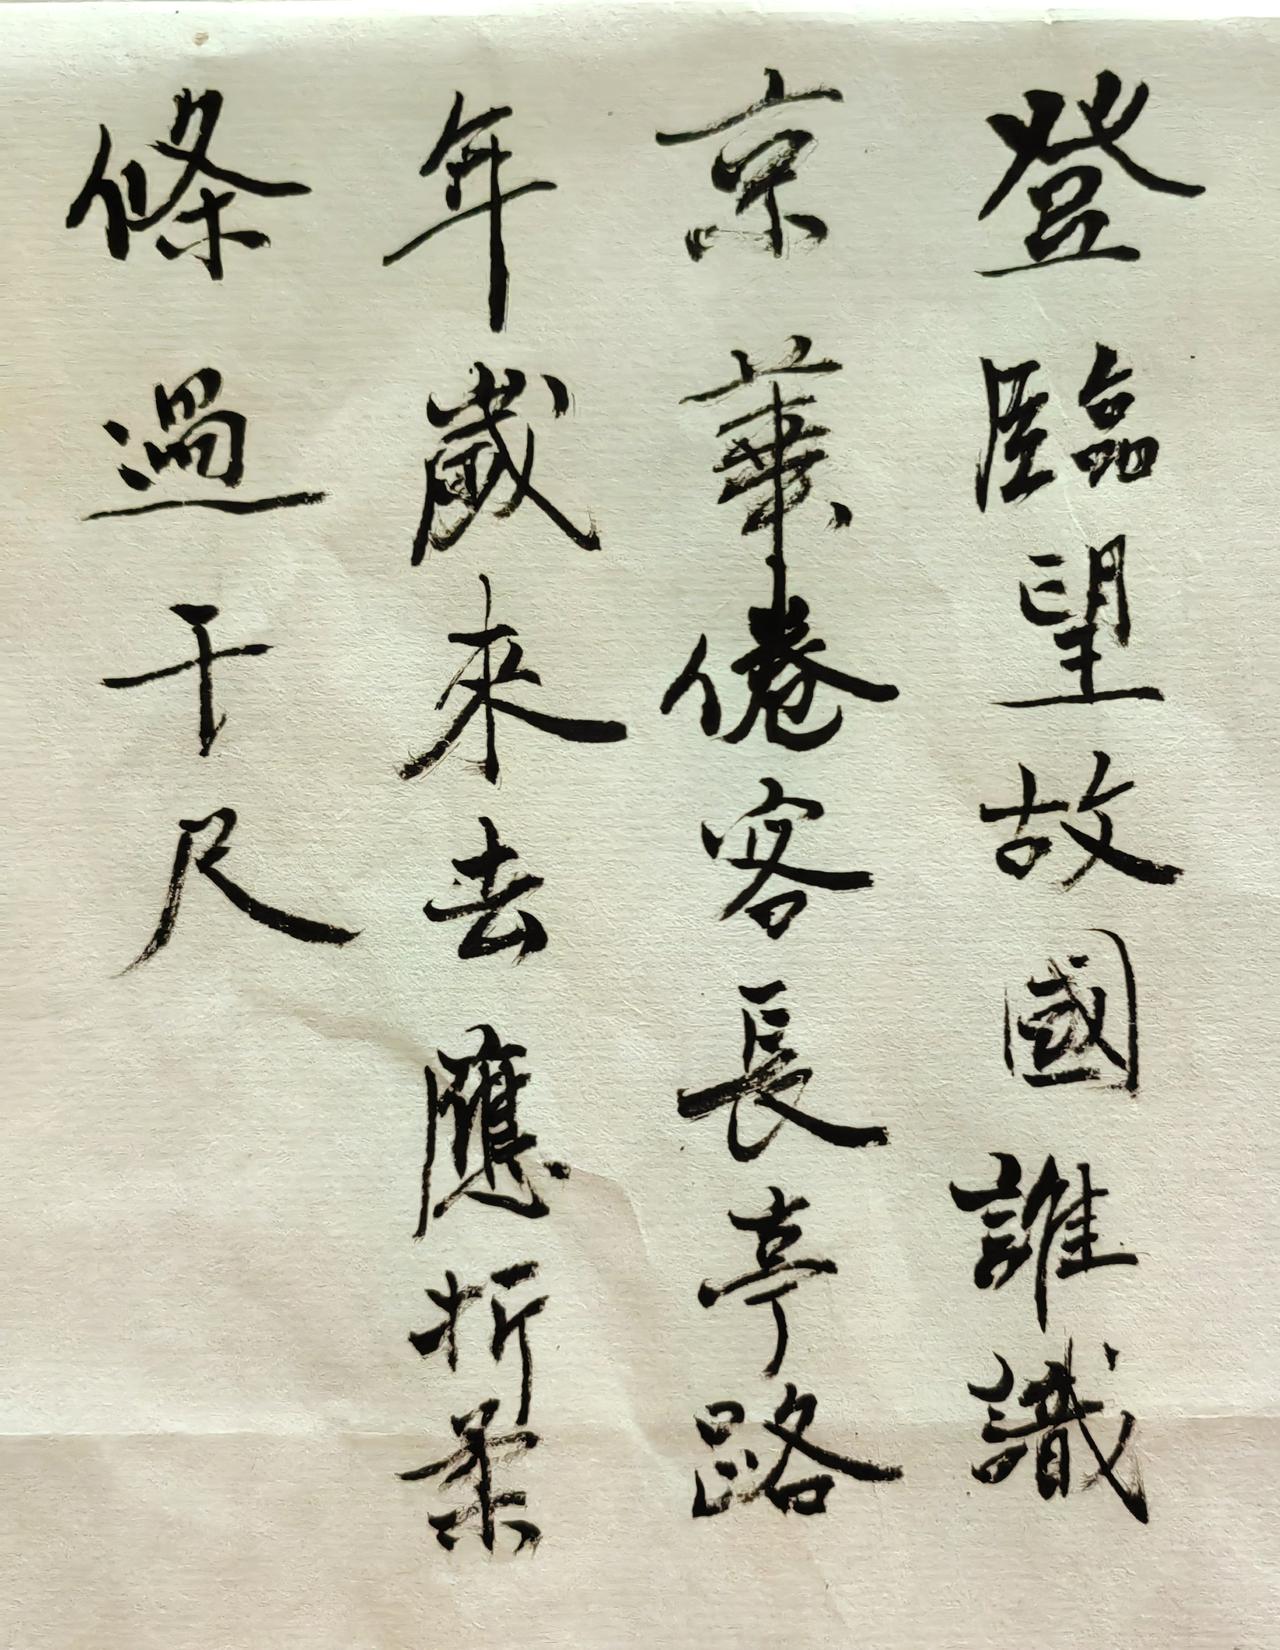 登臨望故國誰識
京華倦客長亭路
年歲來去應折柔
條過千尺